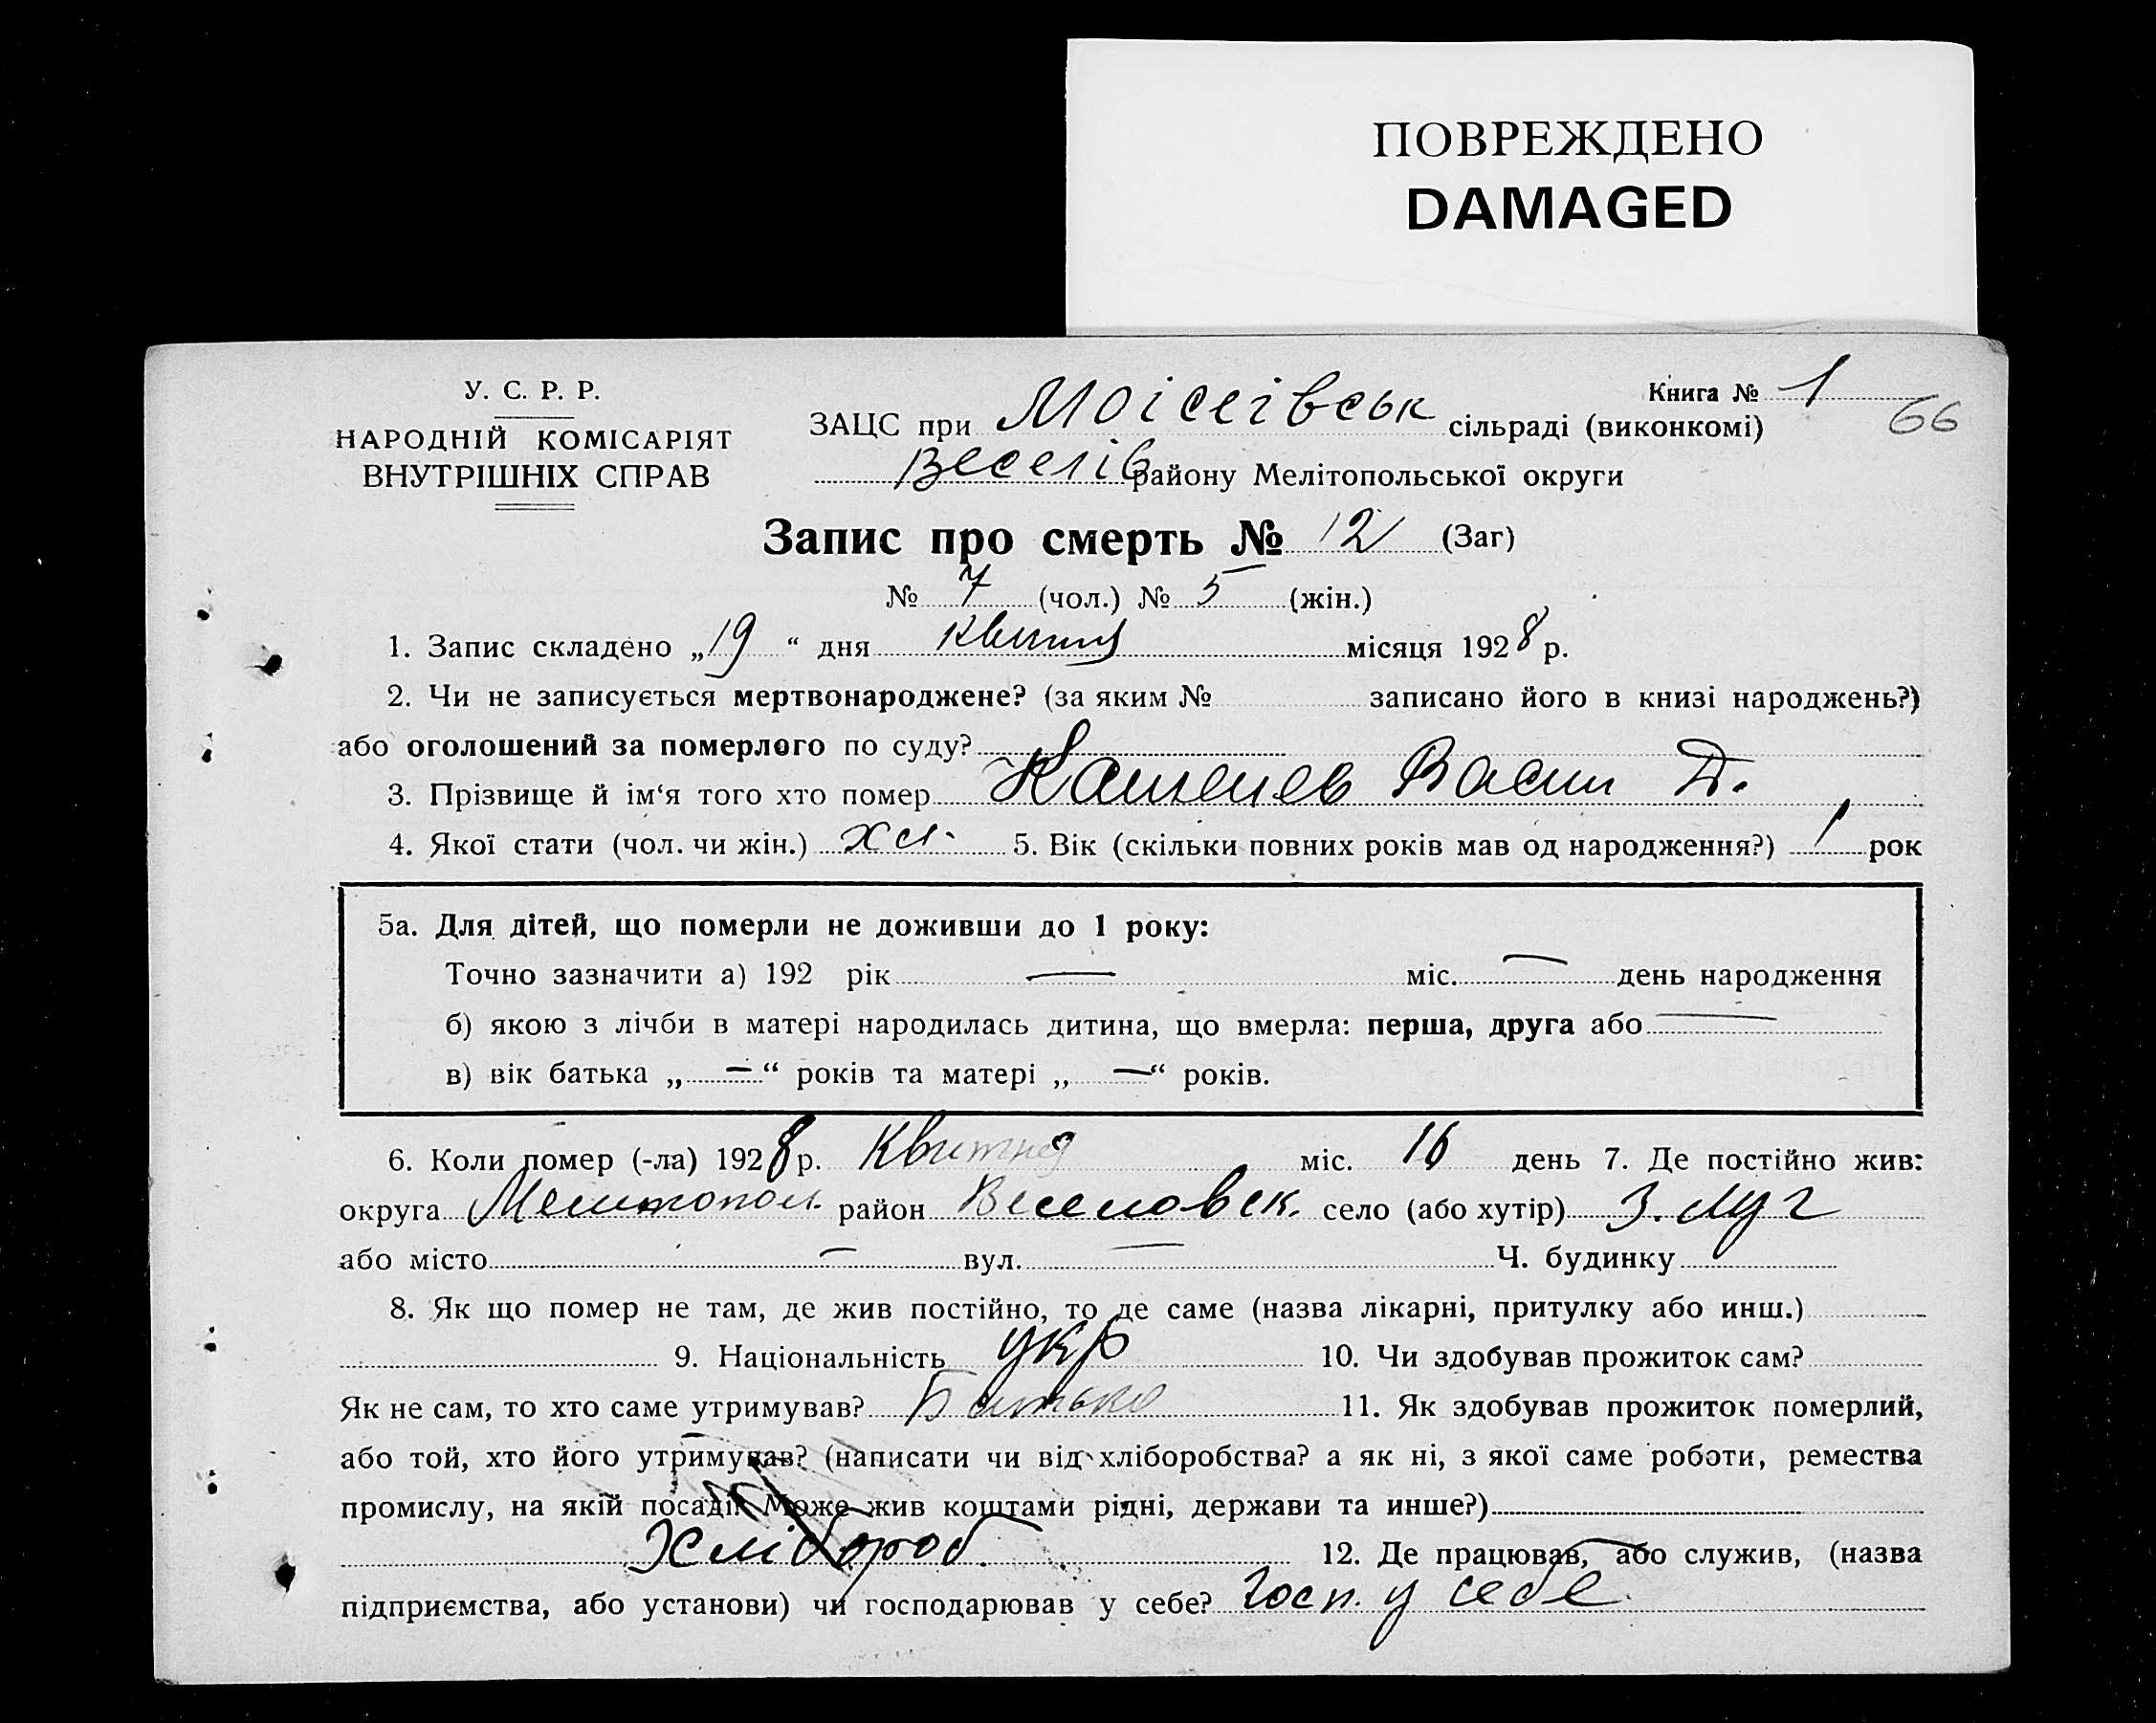 ПОВРЕЖДЕНО
DAMAGED
У. С. Р. Р.
НАРОДНІЙ КОМІСАРІЯТ
ВНУТРІШНІХ СПРАВ
Книга № 1
66
ЗАЦС при Моісеівськ сільраді (виконкомі)
Веселів району Мелітопольської округи
Запис про смерть № 12 (Заг)
№ 7 (чол.) № 5 (жін.)
1. Запис складено „19“ дня квітня місяця 1928 р.
2. Чи не записується мертвонароджене? (за яким № записано його в книзі народжень?)
або оголошений за померлого по суду?
3. Прізвище й ім‘я того хто помер Д.
4. Якої стати (чол. чи жін.) 5. Вік (скільки повних років мав од народження?) 1 рок
5а. Для дітей, що померли не доживши до 1 року:
Точно зазначити а) 192 рік — міс. — день народження
б) якою з лічби в матері народилась дитина, що вмерла: перша, друга або —
в) вік батька „ — “ років та матері „ — “ років.
6. Коли помер (-ла) 1928 р. Квитня міс. 16 день 7. Де постійно жив:
округа Мелитопол. район Веселовск. село (або хутір) З. Луг
або місто — вул. — Ч. будинку
8. Як що помер не там, де жив постійно, то де саме (назва лікарні, притулку або инш.)
9. Національність укр 10. Чи здобував прожиток сам?
Як не сам, то хто саме утримував? Батько 11. Як здобував прожиток померлий,
або той, хто його утримував? (написати чи від хліборобства? а як ні, з якої саме роботи, ремества
промислу, на якій посаді? Може жив коштами рідні, держави та инше?)
Хлібороб. 12. Де працював, або служив, (назва
підприємства, або установи) чи господарював у себе? Госп. у себе